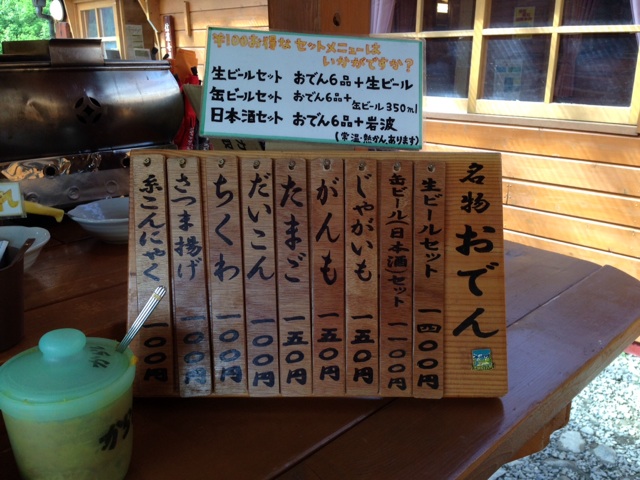 ¥100お得なセットメニューは
いかがですか？
生ビールセット おでん6品+生ビール
缶ビールセット おでん6品+缶ビール350ml
日本酒セット おでん6品+岩波
(常温・熱かんあります)
名物おでん
生ビールセット 一四〇〇円
缶ビール(日本酒)セット 一一〇〇円
じゃがいも 一五〇円
がんも 一五〇円
たまご 一五〇円
だいこん 一〇〇円
ちくわ 一〇〇円
さつま揚げ 一〇〇円
糸こんにゃく 一〇〇円
からし